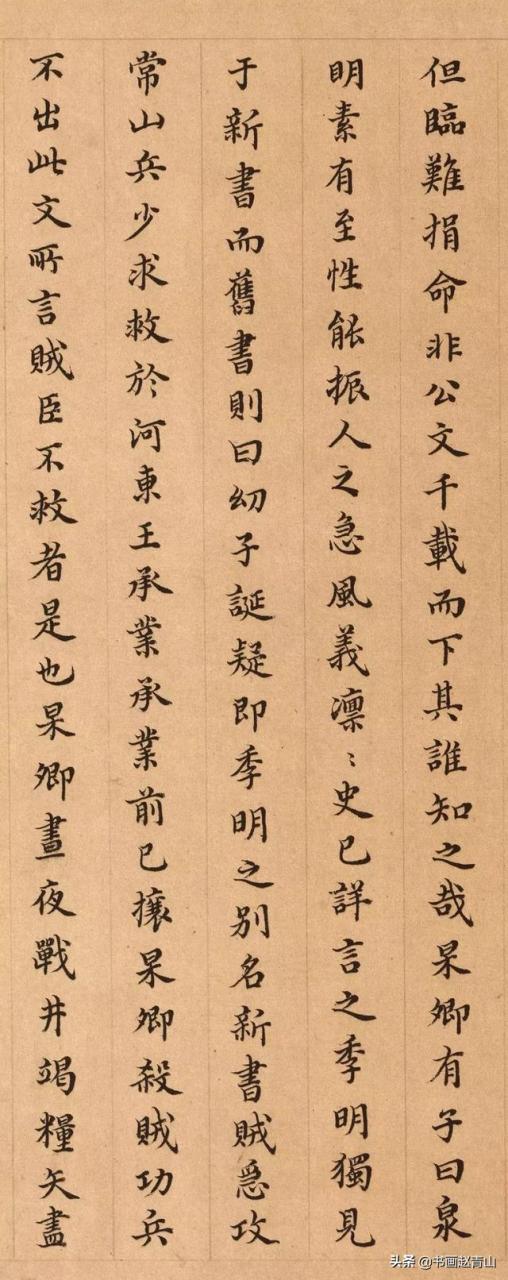 但臨難捐命非公文千載而下其誰知之哉杲卿有子曰泉
明素有至性能振人之急風義凛〻史已詳言之季明獨見
于新書而舊書則曰幼子誕疑即季明之别名新書賊急攻
常山兵少求救於河東王承業承業前已攘杲卿殺賊功兵
不出此文所言賊臣不救者是也杲卿晝夜戰井竭糧矢盡
头条 @书画赵青山